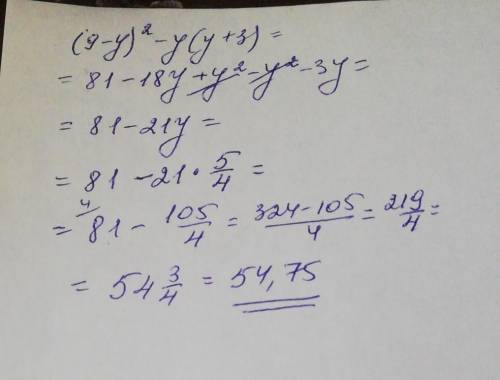 (9-y)² - y(y+3) =
= 81-18y+y²-y²-3y=
= 81-21y =
= 81 - 21 · 5/4 =
= ⁴⁄81 - 105/4 = 324-105/4 = 219/4 =
= 54 3/4 = 54,75